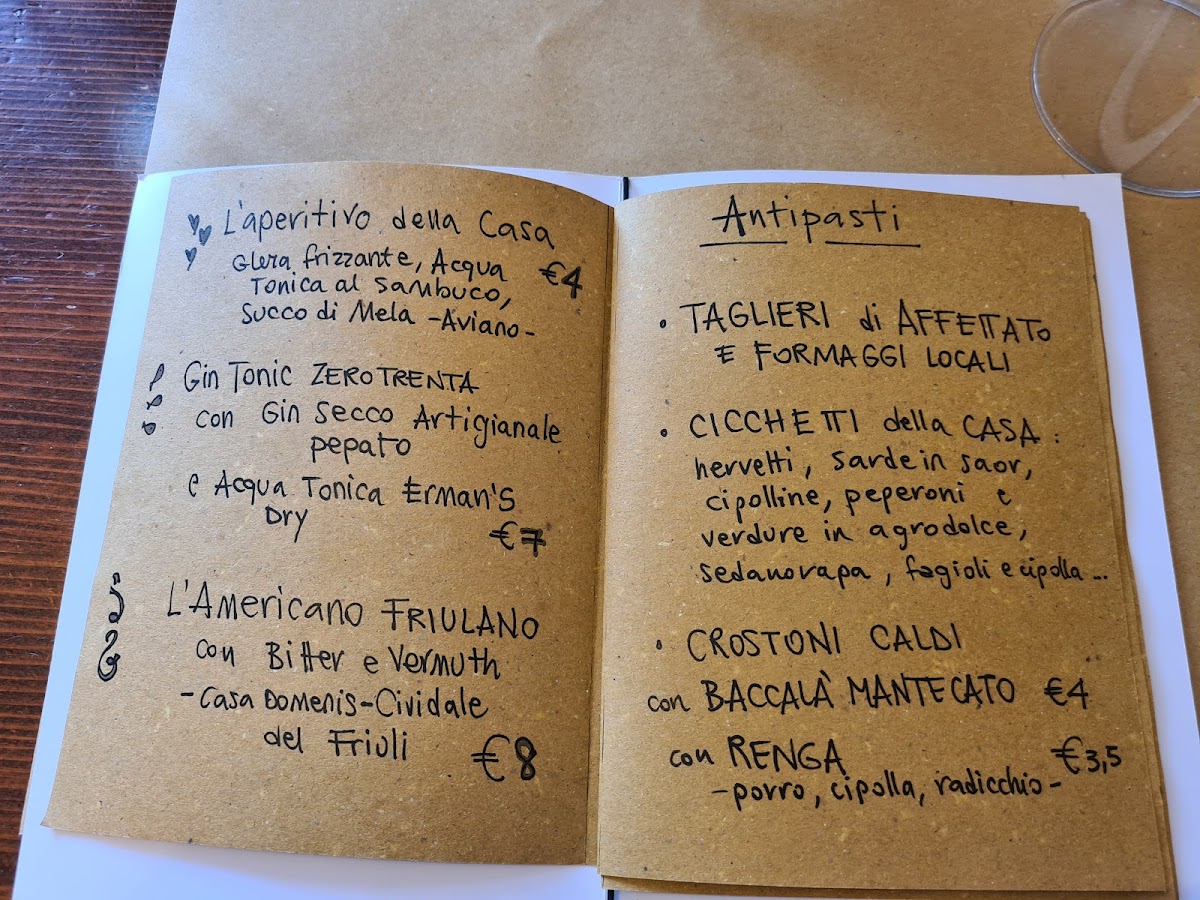 L'aperitivo della Casa
Glera frizzante, Acqua €4
Tonica al Sambuco,
Succo di Mela -Aviano-
Gin Tonic ZEROTRENTA
con Gin Secco Artigianale
pepato
e Acqua Tonica Erman's
Dry
€7
L'Americano FRIULANO
con Bitter e Vermuth
-Casa Domenis-Cividale
del Friuli €8
Antipasti
• TAGLIERI di AFFETTATO
E FORMAGGI LOCALI
• CICCHETTI della CASA:
nervetti, sarde in saor,
cipolline, peperoni e
verdure in agrodolce,
sedanorapa, fagioli e cipolla...
• CROSTONI CALDI
con BACCALÀ MANTECATO €4
con RENGA €3,5
-porro, cipolla, radicchio-